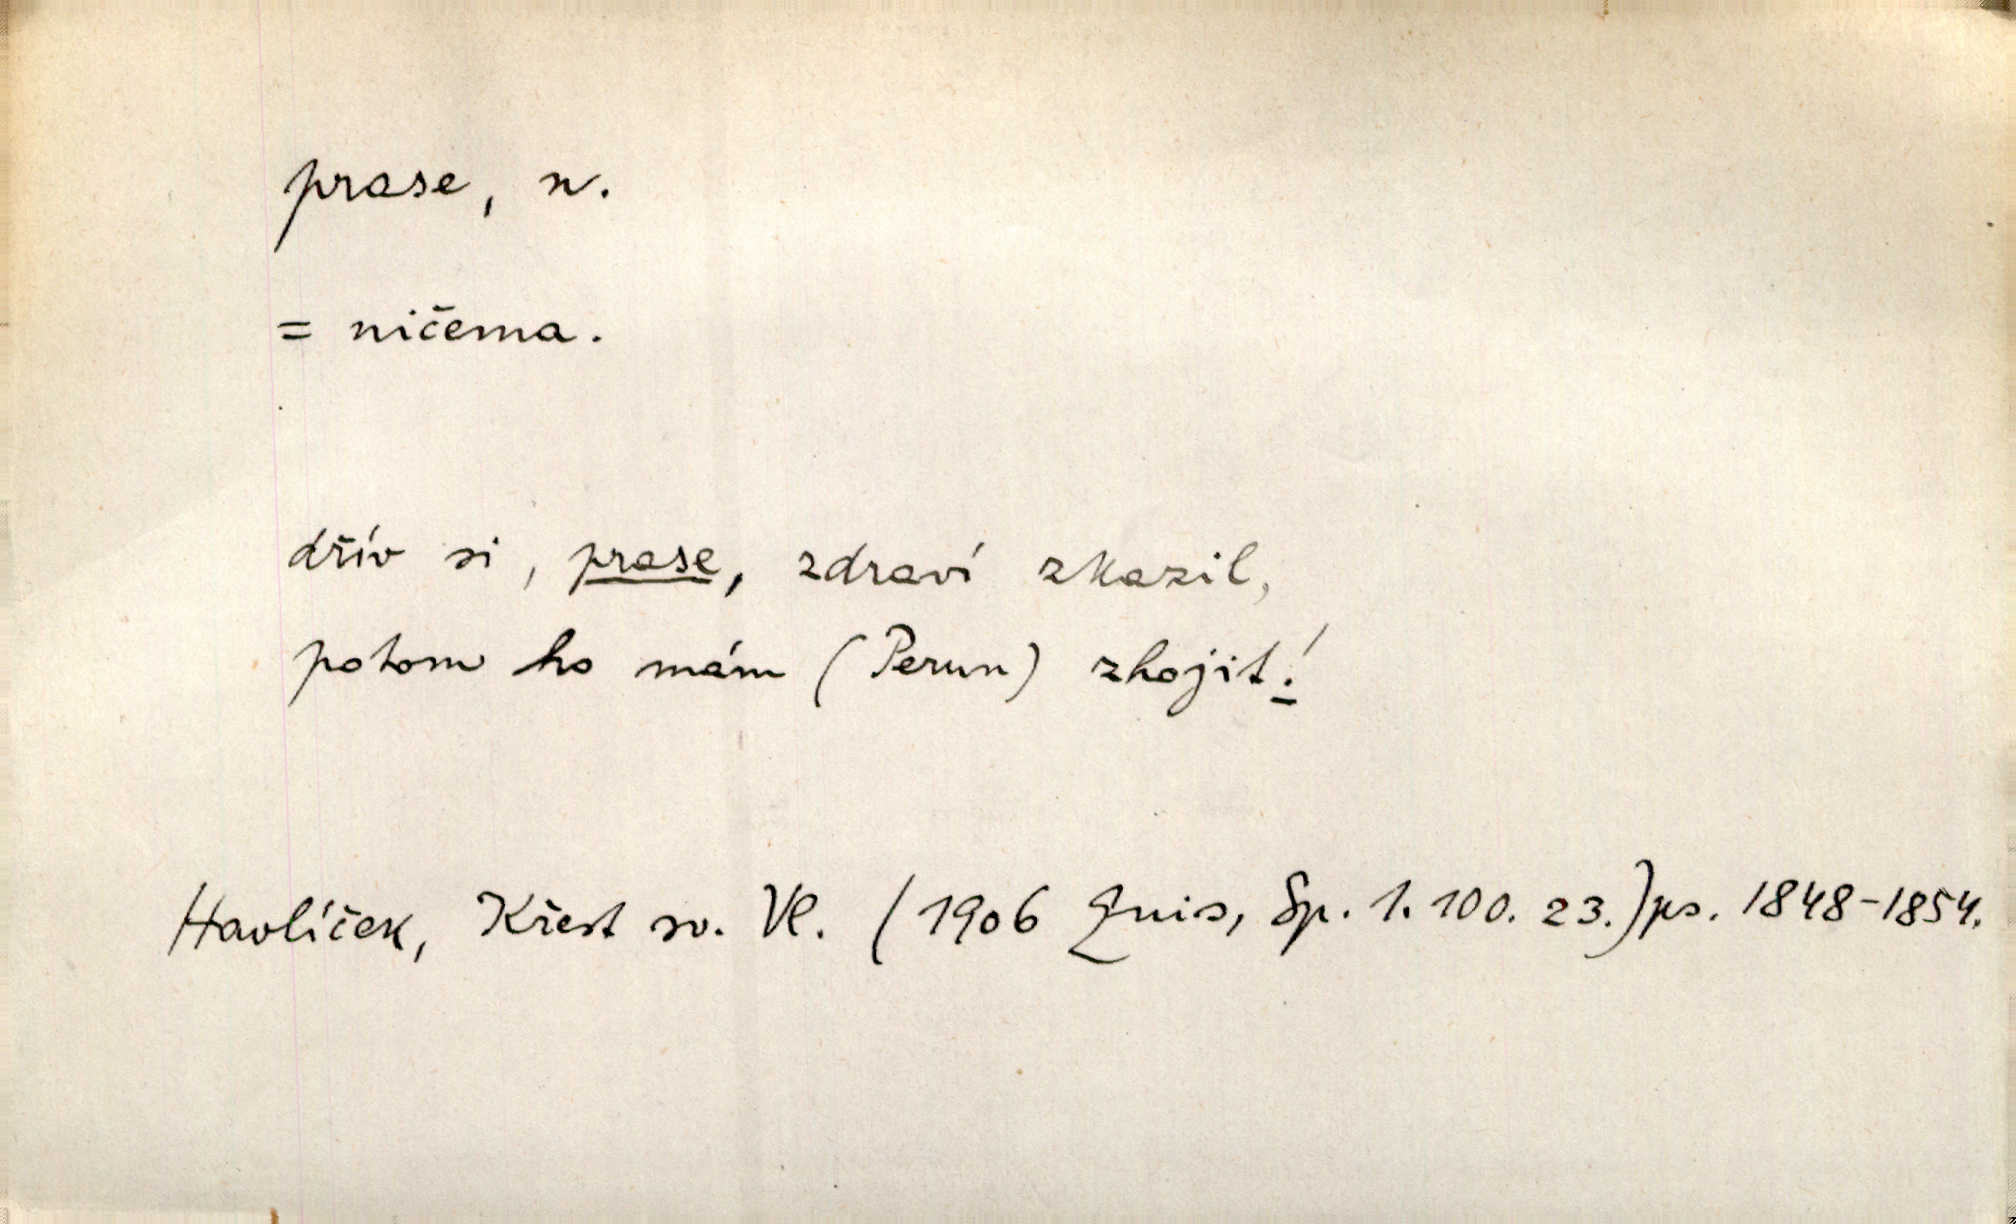 prase, n.
= ničema.
dřív si, prase, zdraví zkazil,
potom ho mám (Perun) zhojit!
Havlíček, Křest sv. Vl. (1906 Quis, Sp. 1. 100. 23.) ps. 1848-1854.